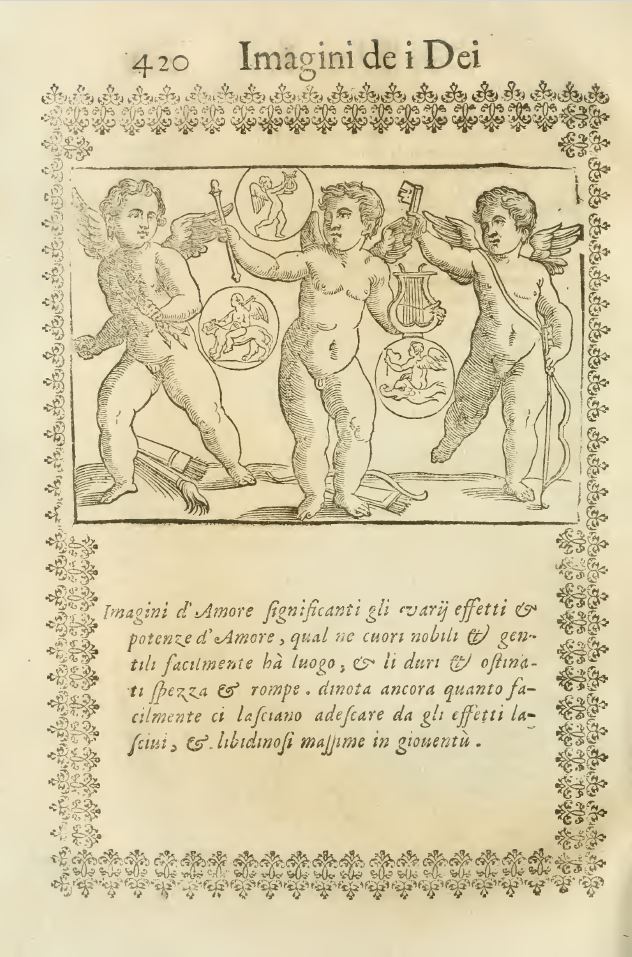 420 Imagini de i Dei
Imagini d'Amore ſignificanti gli varij effetti &
potenze d'Amore, qual ne cuori nobili & gen-
tili facilmente hà luogo, & li duri & oſtina-
ti ſpezza & rompe. dinota ancora quanto fa-
cilmente ci laſciano adeſcare da gli effetti la-
ſciui, & libidinoſi maſſime in giouentù.